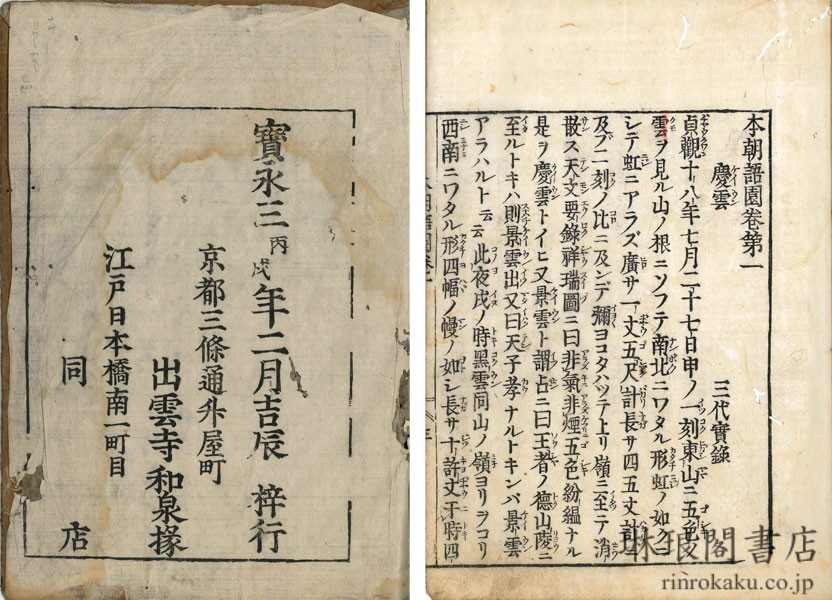 本朝語園卷第一
慶雲 三代實錄
貞觀十八年七月二十七日申ノ一刻東山ニ五色ノ
雲ヲ見ル山ノ根ニソフテ南北ニワタル形虹ノ如クニ
シテ虹ニアラズ廣サ一丈五尺計長サ四五丈計ニ
及ブ二刻ノ比ニ及ンデ彌ヨコタハツテ上リ嶺ニ至テ消
散ス天文要錄祥瑞圖ニ曰非氣非煙五色紛縕ナル
是ヲ慶雲トイヒ又景雲ト謂占ニ曰王者ノ德山陵ニ
至ルトキハ則景雲出又曰天子孝ナルトキンバ景雲
アラハルト云云此夜戌ノ時黑雲同山ノ嶺ヨリヲコリ
西南ニワタル形四幅ノ幔ノ如シ長サ十許丈于時四
寶永三丙戌年二月吉辰 梓行
京都三條通升屋町
出雲寺和泉掾
江戸日本橋南一町目
同 店
琳琅閣書店
rinrokaku.co.jp